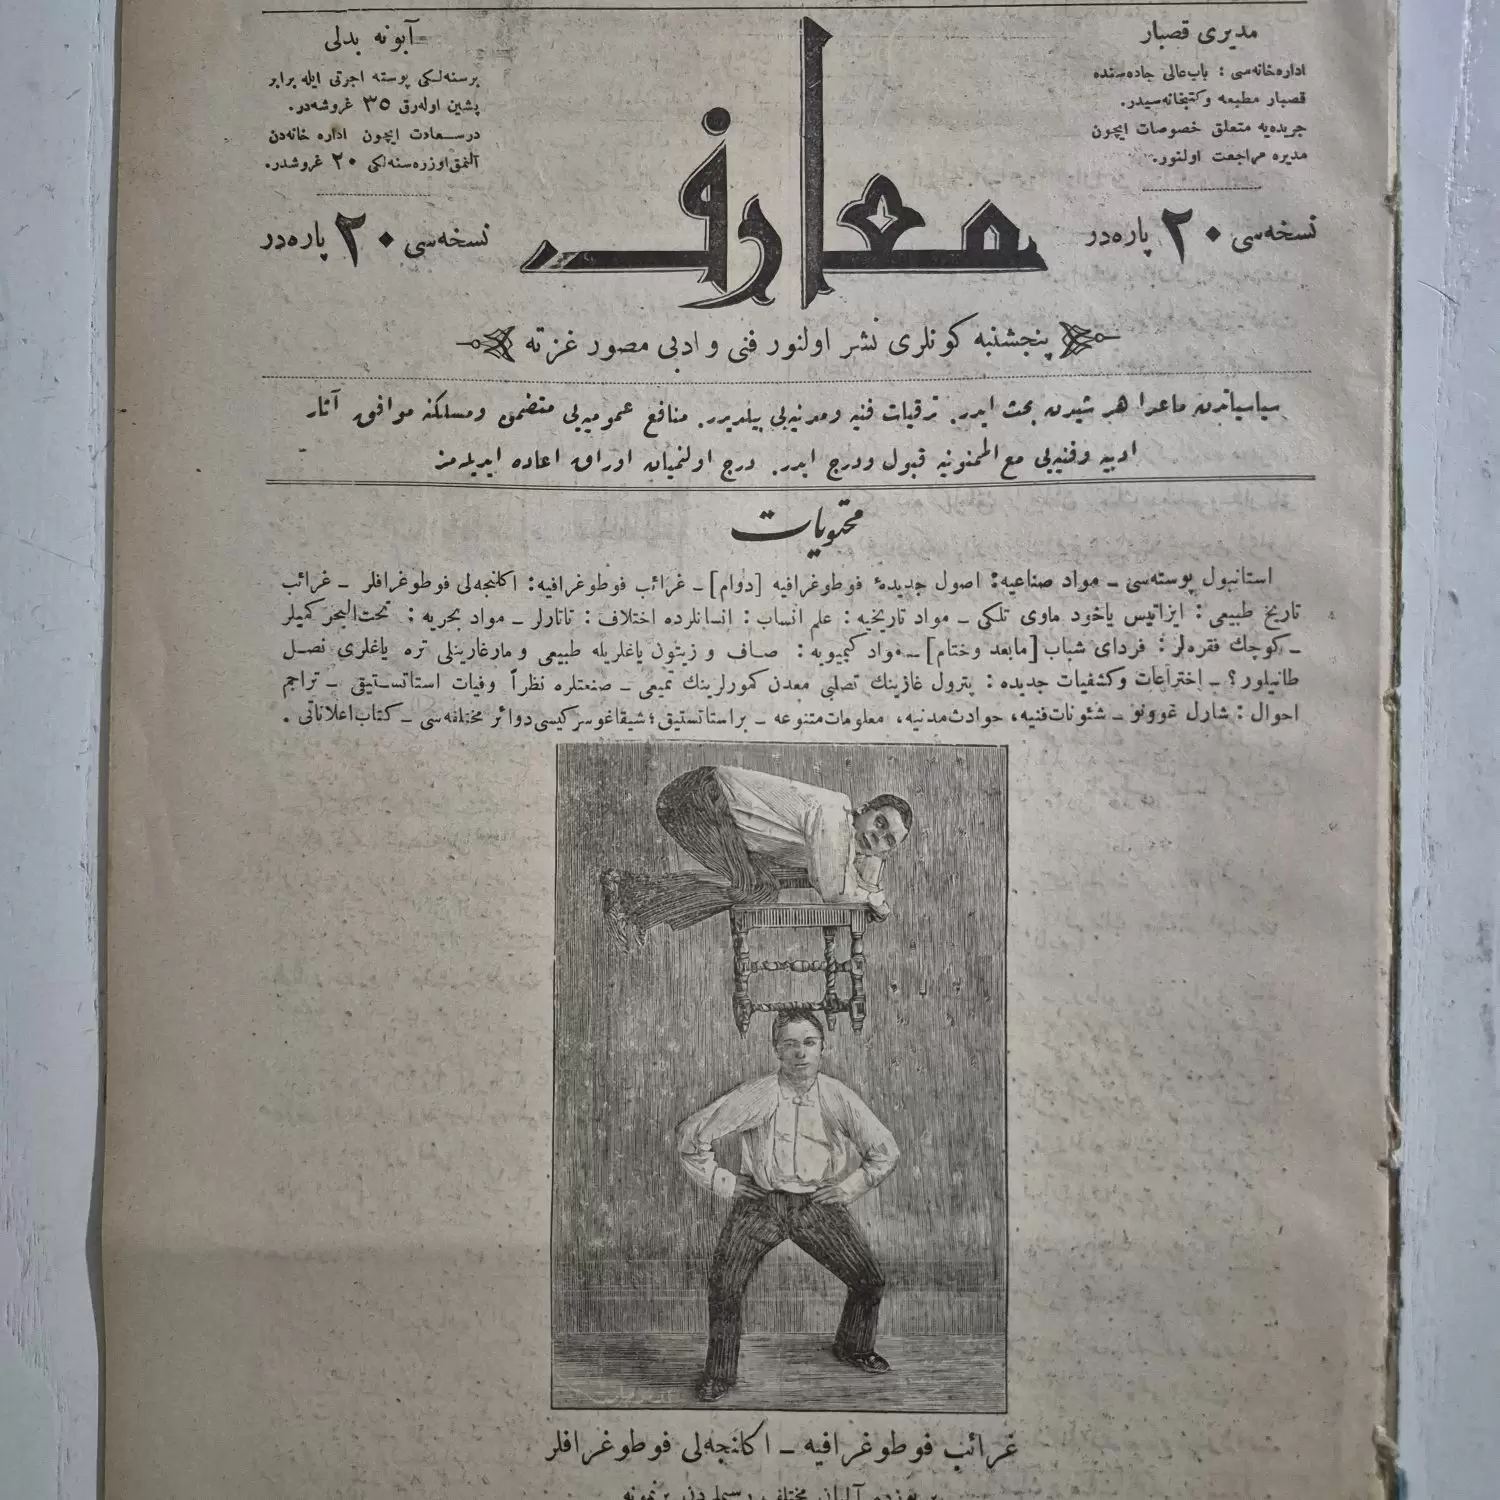 مدیری قصبار
اداره‌خانه‌سی : باب‌عالی جاده‌سنده
قصبار مطبعه و کتبخانه‌سیدر.
جریده‌یه متعلق خصوصات ایچون
مدیره مراجعت اولنور.
نسخه‌سی ۲۰ پاره‌در
معارف
آبونه بدلی
برسنه‌لکی پوسته اجرتی ایله برابر
پشین اوله‌رق ۳۵ غروشه‌در.
درسـعادت ایچون اداره خانه‌دن
آلنمق اوزره سنه‌لکی ۲۰ غروشدر.
نسخه‌سی ۲۰ پاره‌در
پنجشنبه کونلری نشر اولنور فنی و ادبی مصور غزته
سیاسیاتدن ماعدا هر شیدن بحث ایدر. ترقیات فنیه و مدنیه‌یی بیلدیرر. منافع عمومیه‌یی متضمن ومسلکنه موافق آثار
ادبیه وفنیه‌یی مع الممنونیه قبول ودرج ایدر. درج اولنمیان اوراق اعاده ایدیله‌مز
محتویات
استانبول پوسته‌سی ـ مواد صناعیه: اصول جدیدۀ فوطوغرافیه [دوام] ـ غرائب فوطوغرافیه: اکلنجه‌لی فوطوغرافلر ـ غرائب
تاریخ طبیعی : ایزاتیس یاخود ماوی تلکی ـ مواد تاریخیه : علم انساب : انسانلرده اختلاف : تاتارلر ـ مواد بحریه : تحت‌البحر کمیلر
ـ کوچك فقره‌لر : فردای شباب [مابعد وختام] ـ مواد کیمیویه : صـاف و زیتون یاغلریله طبیعی و مارغارینلی تره یاغلری نصـل
طانیلور؟ ـ اختراعات وکشفیات جدیده : پترول غازینك تصلبی معدن کمورلرینك تمیعی ـ صنعتلره نظراً وفیات استاتستیقی ـ تراجم
احوال : شارل غوونو ـ شئونات‌فنیه، حوادث‌مدنیه، معلومات‌متنوعه ـ براستاتستیق؛ شیقاغو سرکیسی دوائر مختلفه‌سی ـ کتاب‌اعلاناتی .
غرائب فوطوغرافیه ـ اکلنجه‌لی فوطوغرافلر